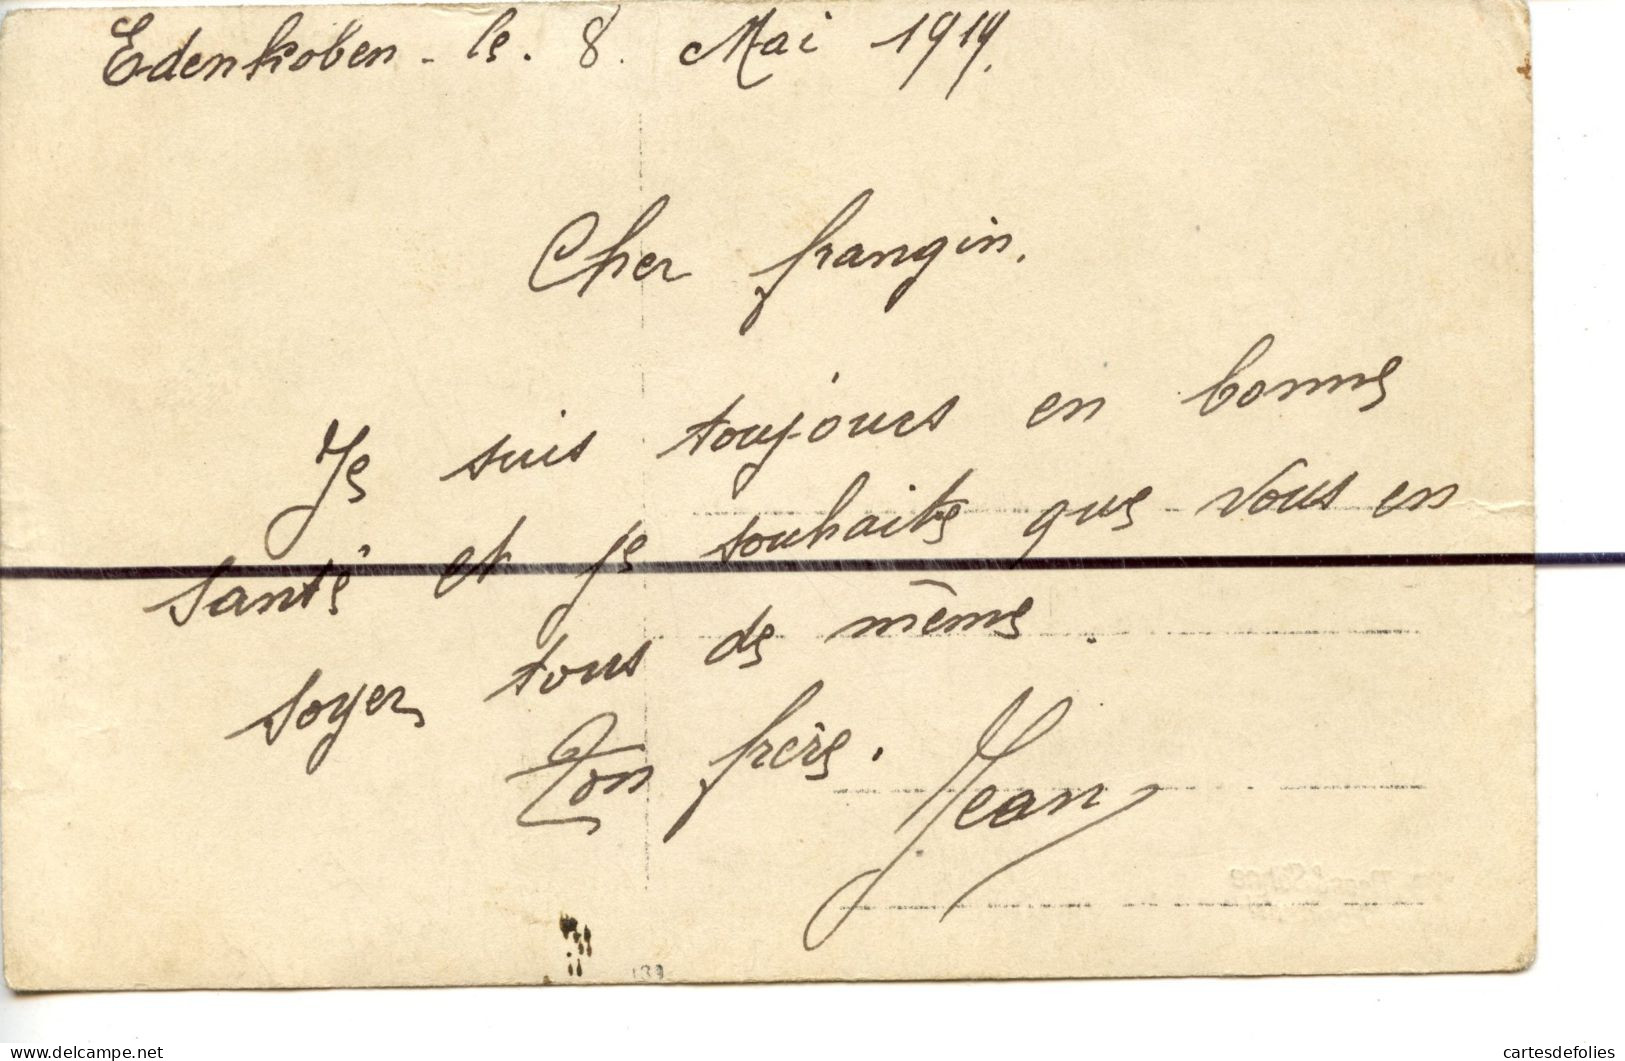 Edenkoben - le. 8. Mai 1919.
Cher frangin.
Je suis toujours en bonne
santé et je souhaite que vous en
soyer tous de même.
Ton frère. Jean
139
www.delcampe.net
cartesdefolies